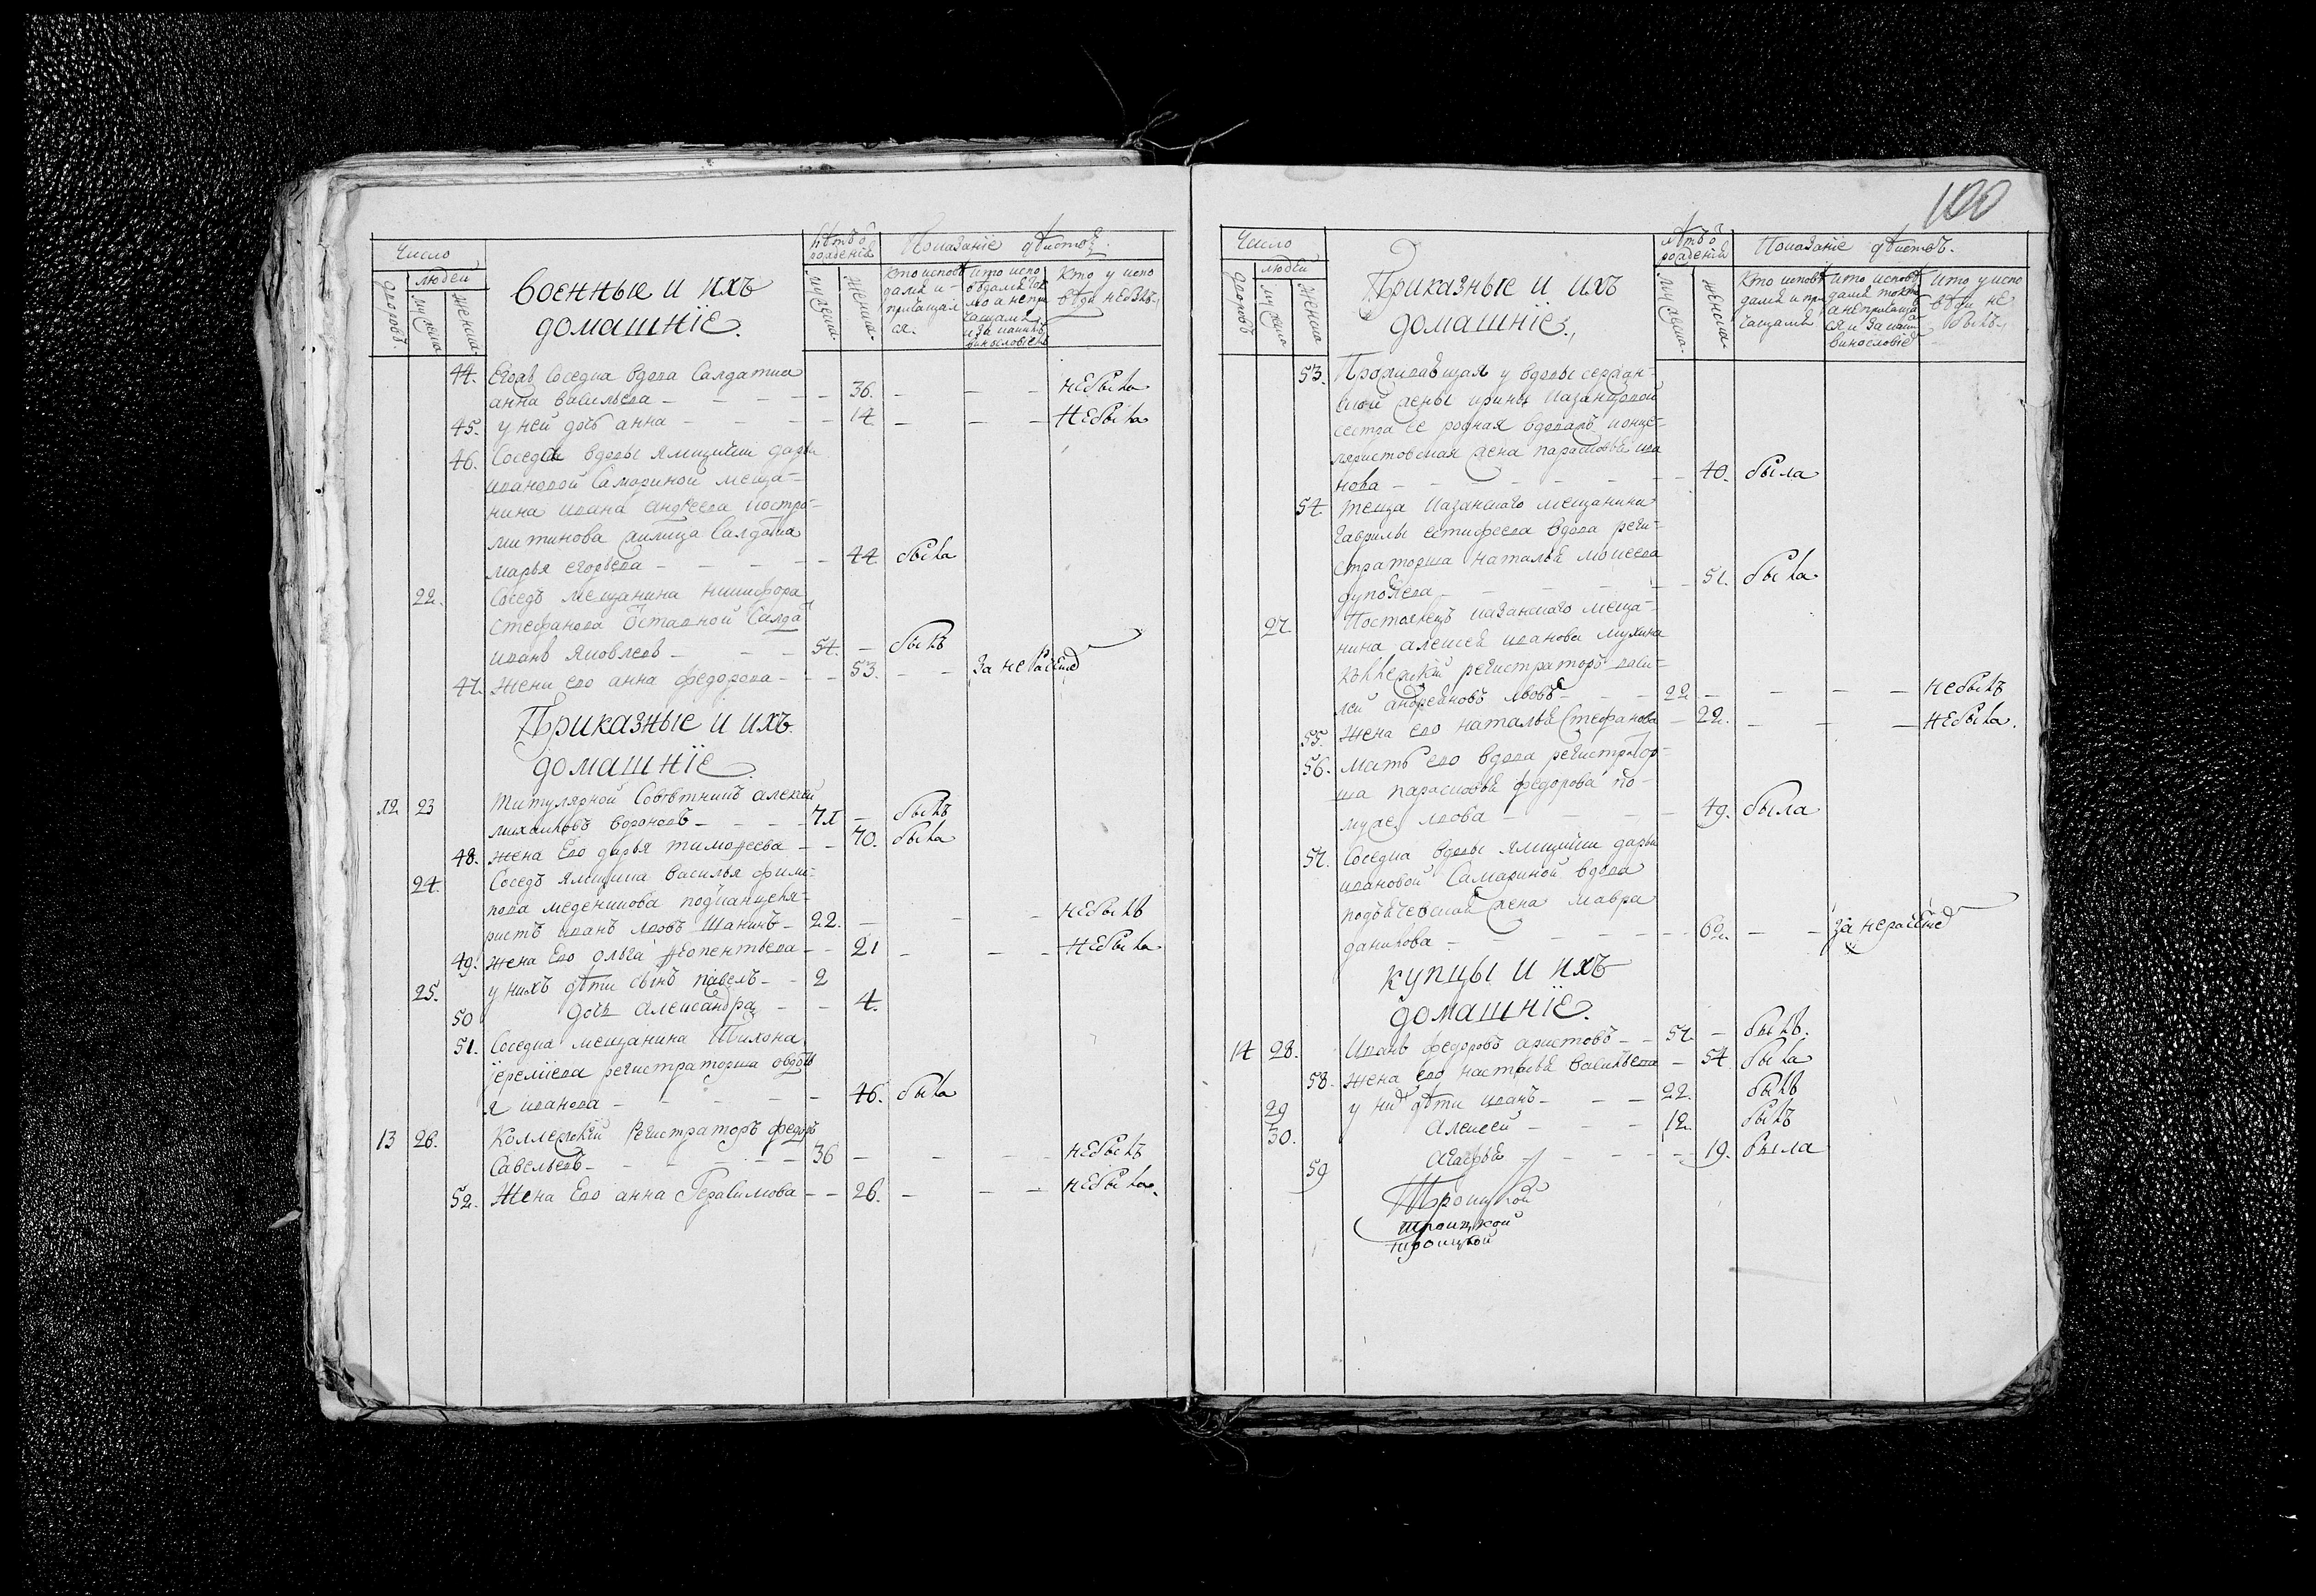 Число
людей
дворовъ.
мужска
женска
военные и ихъ
домашніе.
Лѣтъ ѿ
рожденія
мужска.
женска.
Показаніе дѣйство
Кто исповѣ
дался и
причащал
ся.
Кто у испо
вѣди не былъ.
44. Егожъ соседка вдова Салдатка
анна васильева - - - 36. - - - не была
45. у ней дочь анна - - - 14. - - - не была
46. Соседка вдовы ямщички дарьи
ивановой Самариной меща-
нина ивана андреева костро-
митинова жилица Салдатка
марья егорьева - - - 44. была
22. Соседъ мещанина никифора
стефанова ѿставной Салда
иванъ яковлевъ - - - 54. - былъ
47. Жена его анна федорова - - - 53. - -
Приказные и ихъ
домашніе.
12 23 титулярной Советникъ алексей
михаиловъ вороновъ - - - 71 - былъ
48. жена Его дарья тимофеева - - 70. была
24. Соседъ ямщика василья фили-
пова меденикова подканцеля-
ристъ иванъ львовъ Шанинъ - 22. - - - не былъ
49. жена Его ольга - - 21 - - - не была
25. у нихъ дѣти сынъ павелъ - - 2
50 дочь александра - - 4.
51. Соседка мещанина Тихона
еремѣева регистраторша овдоть
я иванова - - - 46. была
13 26. Коллежскій Регистраторъ федоръ
Савельевъ - - - 36 - - - не былъ
52. Жена Его анна Герасимова - - 26. - - - не была.
100
Число
людей
дворовъ
мужска
женска
Приказные и ихъ
домашніе.
лѣтъ ѿ
рожденія
мужска.
женска.
Показаніе дѣйствъ.
Кто исповѣ
дался и при
чащался
Кто у испо
вѣди не
былъ.
53. Проживающая у вдовы сержан-
ской жены ирины казанцовой
сестра ее родная вдова канце-
ляристовская жена парасковья ива
нова - - - 40. была
54. теща казанскаго мещанина
гаврилы евтифеева вдова реги-
страторша наталья моисеева
- - - 51. была
27. Постоялецъ казанскаго меща-
нина алексея иванова мухина
коллежскій регистраторъ васи-
лей андреяновъ львовъ - - 22 - - - не былъ
55. жена его наталья Стефанова - 22. - - - не была.
56. мать его вдова регистратор-
ша парасковья федорова по
мужу львова - - - 49. была
57. Соседка вдовы ямщички дарьи
ивановой Самариной вдова
подъяческая жена мавра
данилова - - - 62. - -
купцы и ихъ
домашніе.
14 28. Иванъ федоровъ аристовъ - - 57. - былъ.
58. жена его настасья васильева - 54. была
29 у них дѣти иванъ - - - 22. былъ
30. Алексей - - - 12. былъ
59 Агафья - - - 19. была
Троицкой
троицкой
троицкой